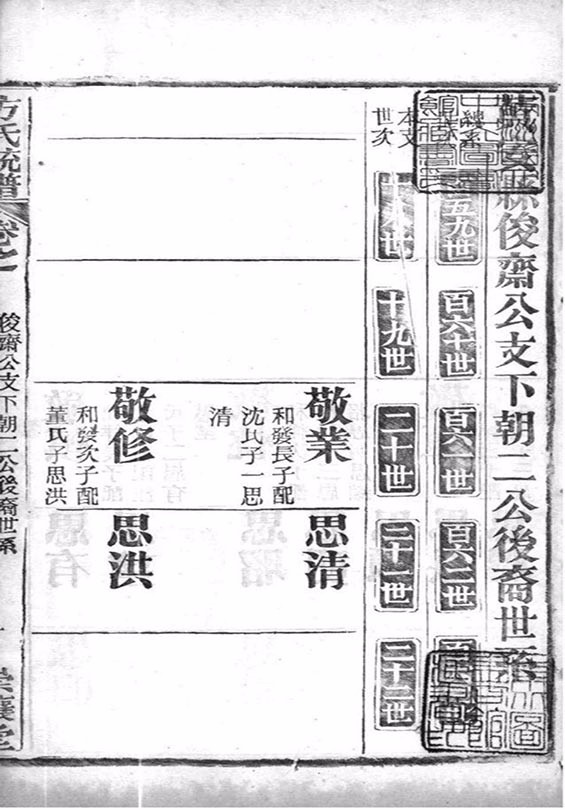 縣俊齋公支下朝二公後裔世系
總系
五九世
百六十世
百六一世
百六二世
本支世次
十八世
十九世
二十世
二十一世
二十二世
敬業
和發長子配
沈氏子一思
清
思清
敬修
和發次子配
董氏子思洪
思洪
方氏統譜
卷之
俊齋公支下朝二公後裔世系